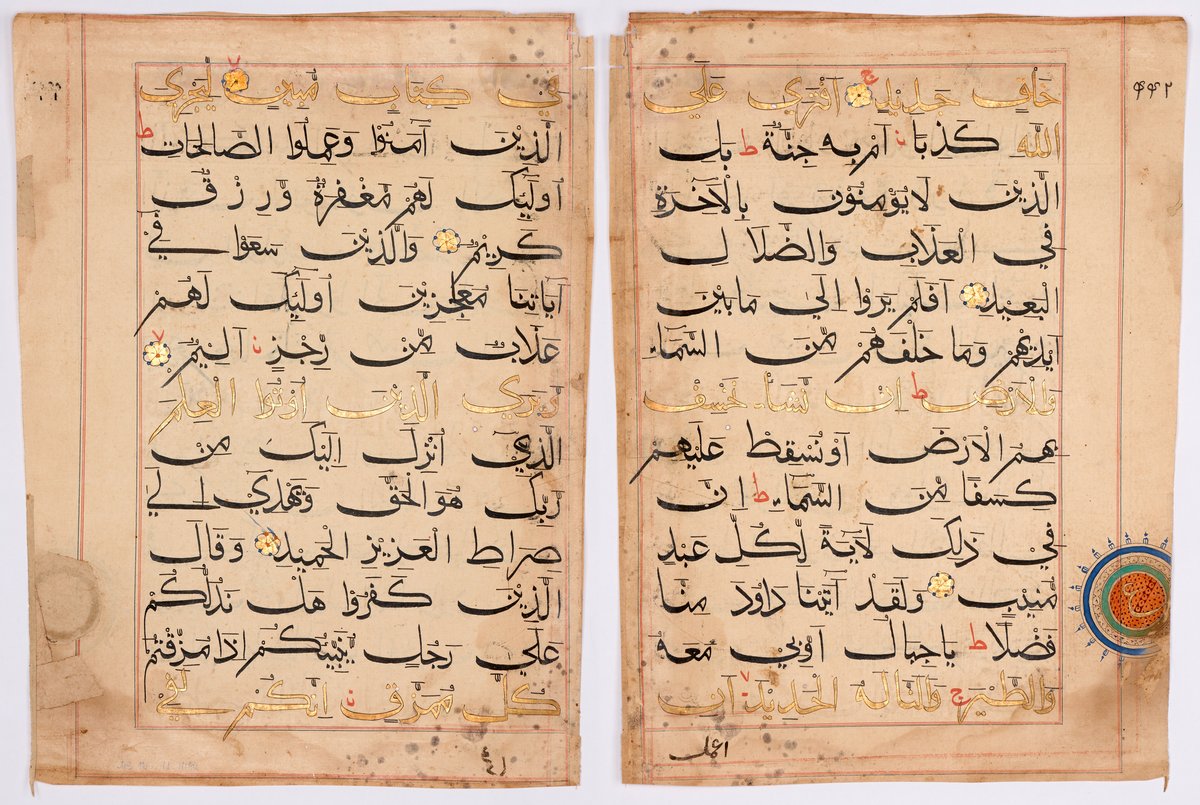 فِي كِتَابٍ مُّبِينٍ لِّيَجْزِيَ
الَّذِيْنَ آمَنُوْا وَعَمِلُوا الصَّالِحَاتِ ط
اُولٰٓئِكَ لَهُمْ مَّغْفِرَةٌ وَّرِزْقٌ
كَرِيْمٌ وَالَّذِيْنَ سَعَوْا فِيْ
آيَاتِنَا مُعٰجِزِيْنَ اُولٰٓئِكَ لَهُمْ
عَذَابٌ مِّنْ رِّجْزٍ اَلِيْمٌ
وَيَرَى الَّذِيْنَ اُوْتُوا الْعِلْمَ
الَّذِيْ اُنْزِلَ اِلَيْكَ مِنْ
رَّبِّكَ هُوَ الْحَقَّ وَيَهْدِيْ اِلٰى
صِرَاطِ الْعَزِيْزِ الْحَمِيْدِ وَقَالَ
الَّذِيْنَ كَفَرُوْا هَلْ نَدُلُّكُمْ
عَلٰى رَجُلٍ يُّنَبِّئُكُمْ اِذَا مُزِّقْتُمْ
كُلَّ مُمَزَّقٍ اِنَّكُمْ لَفِيْ
۴۴۲
خَلْقٍ جَدِيْدٍ ج اَفْتَرٰى عَلَى
اللّٰهِ كَذِبًا اَمْ بِهٖ جِنَّةٌ ط بَلِ
الَّذِيْنَ لَا يُؤْمِنُوْنَ بِالْاٰخِرَةِ
فِي الْعَذَابِ وَالضَّلَالِ
الْبَعِيْدِ اَفَلَمْ يَرَوْا اِلٰى مَا بَيْنَ
اَيْدِيْهِمْ وَمَا خَلْفَهُمْ مِّنَ السَّمَاءِ
وَالْاَرْضِ ط اِنْ نَّشَأْ نَخْسِفْ
بِهِمُ الْاَرْضَ اَوْ نُسْقِطْ عَلَيْهِمْ
كِسَفًا مِّنَ السَّمَاءِ ط اِنَّ
فِيْ ذٰلِكَ لَاٰيَةً لِّكُلِّ عَبْدٍ
مُّنِيْبٍ وَلَقَدْ آتَيْنَا دَاوٗدَ مِنَّا
فَضْلًا ط يَاجِبَالُ اَوِّبِيْ مَعَهٗ
وَالطَّيْرَ ج وَاَلَنَّا لَهُ الْحَدِيْدَ اَنِ
اعمل